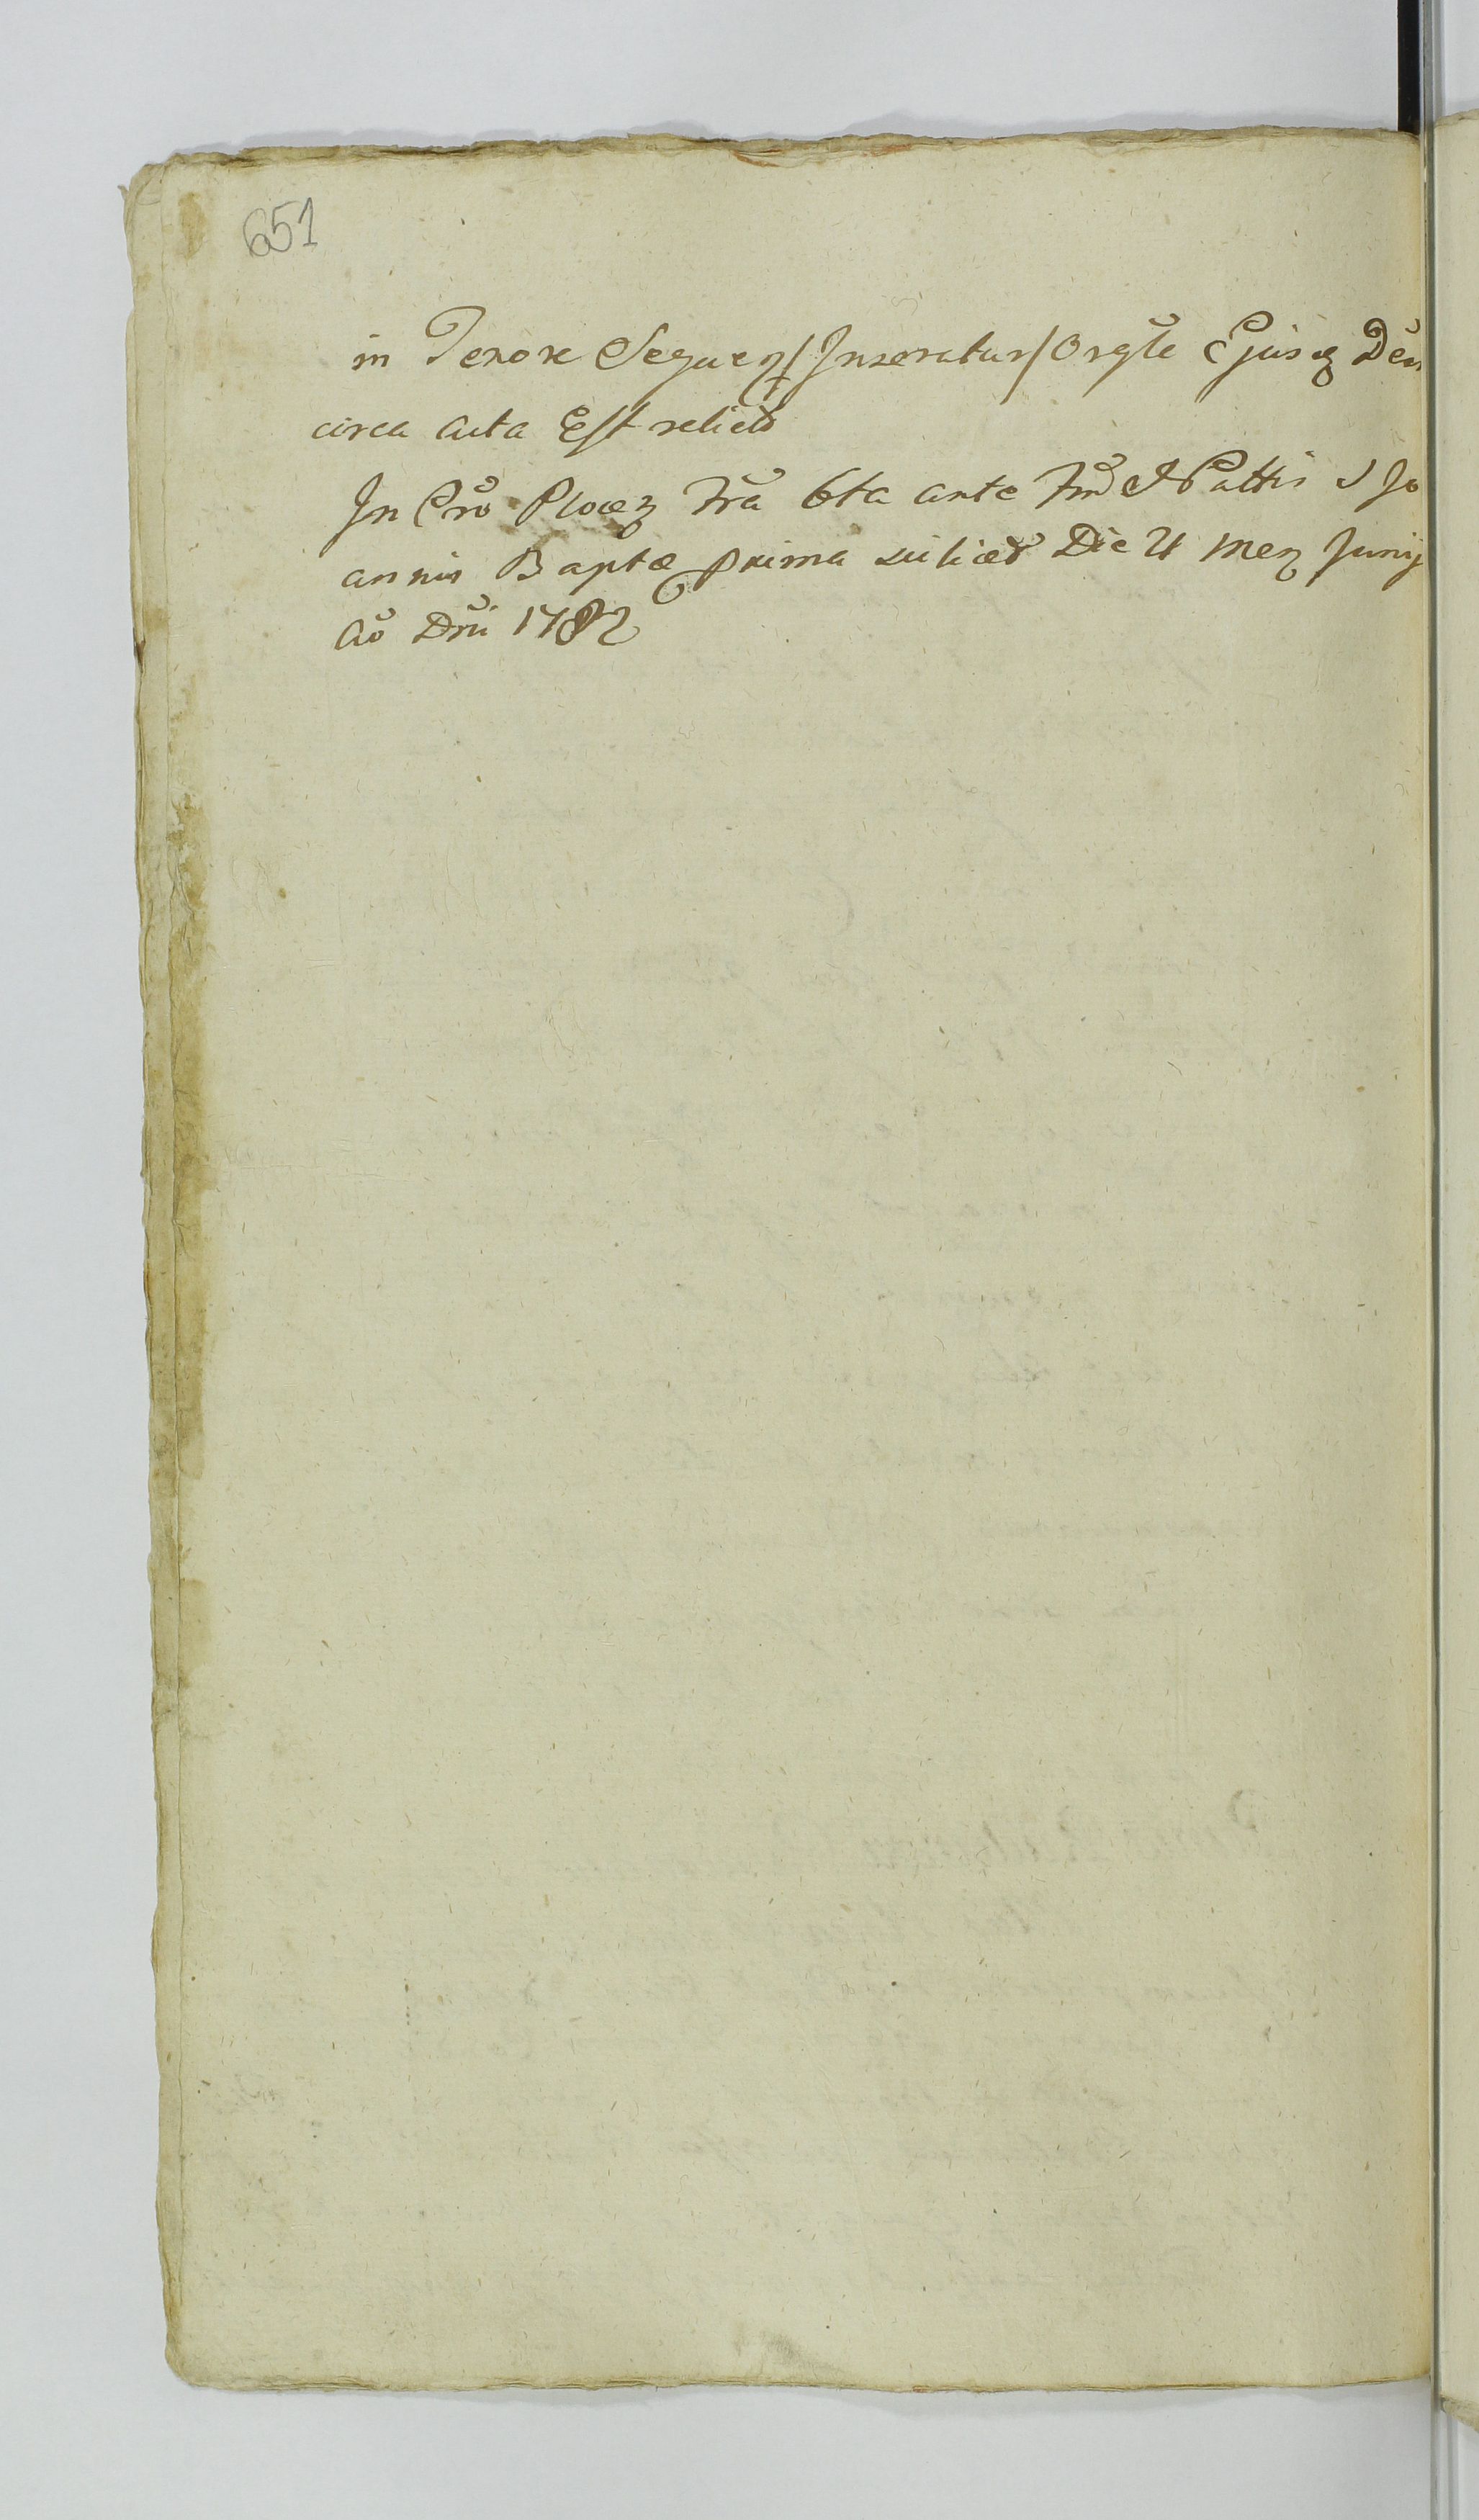 651
in Tenore Sequen / Inseratur / Orgłe Ejusq Den
circa acta Est relictũ
In Crõ Plocen Frã 6ta ante Fm Nattis S Jo
annis Baptæ prima scilicet Die 21 Men Junij
Aõ Dni 1782